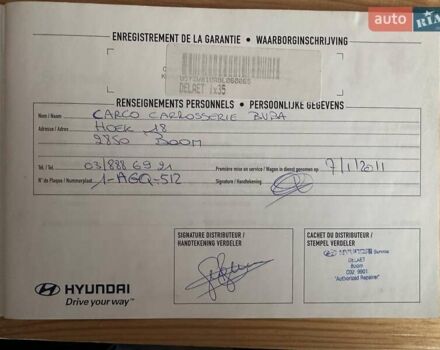 auto RIA
ENREGISTREMENT DE LA GARANTIE • WAARBORGINSCHRIJVING
DELAET IX35
RENSEIGNEMENTS PERSONNELS • PERSOONLIJKE GEGEVENS
Nom / Naam CARCO CARROSSERIE BVBA
Adresse / Adres HOEK 18
2850 BOOM
Tél. / Tel 03/888 69 21 Première mise en service / Wagen in dienst genomen op 7/1/2011
N° de Plaque / Nummerplaat 1-AGQ-512 Signature / Handtekening
SIGNATURE DISTRIBUTEUR /
HANDTEKENING VERDELER
CACHET DU DISTRIBUTEUR /
STEMPEL VERDELER
HYUNDAI Service
DELAET
Boom
C02 9901
"Authorized Repairer"
HYUNDAI
Drive your way™